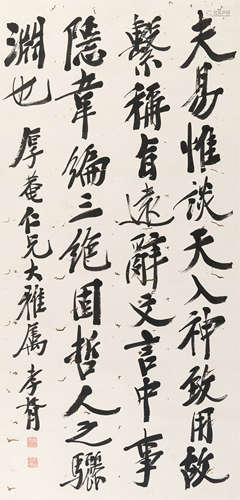 夫易惟談天入神致用故
繫稱旨遠辭文言中事
隱韋編三絕固哲人之驪
淵也
厚菴仁兄大雅屬 孝胥